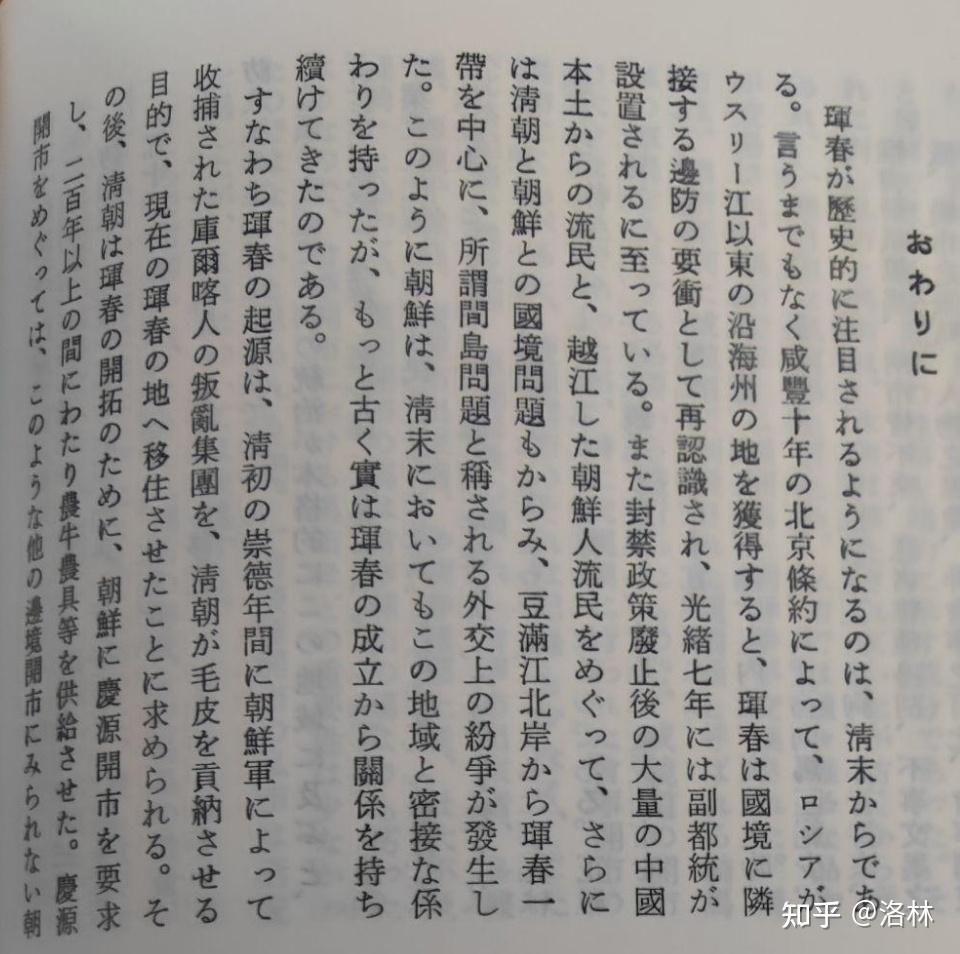 おわりに
琿春が歷史的に注目されるようになるのは、淸末からであ
る。言うまでもなく咸豐十年の北京條約によって、ロシアが
ウスリー江以東の沿海州の地を獲得すると、琿春は國境に隣
接する邊防の要衝として再認識され、光緖七年には副都統が
設置されるに至っている。また封禁政策廢止後の大量の中國
本土からの流民と、越江した朝鮮人流民をめぐって、さらに
は淸朝と朝鮮との國境問題もからみ、豆滿江北岸から琿春一
帶を中心に、所謂間島問題と稱される外交上の紛爭が發生し
た。このように朝鮮は、淸末においてもこの地域と密接な係
わりを持ったが、もっと古く實は琿春の成立から關係を持ち
續けてきたのである。
すなわち琿春の起源は、淸初の崇德年間に朝鮮軍によって
收捕された庫爾喀人の叛亂集團を、淸朝が毛皮を貢納させる
目的で、現在の琿春の地へ移住させたことに求められる。そ
の後、淸朝は琿春の開拓のために、朝鮮に慶源開市を要求
し、二百年以上の間にわたり農牛農具等を供給させた。慶源
開市をめぐっては、このような他の邊境開市にみられない朝
知乎 @洛林